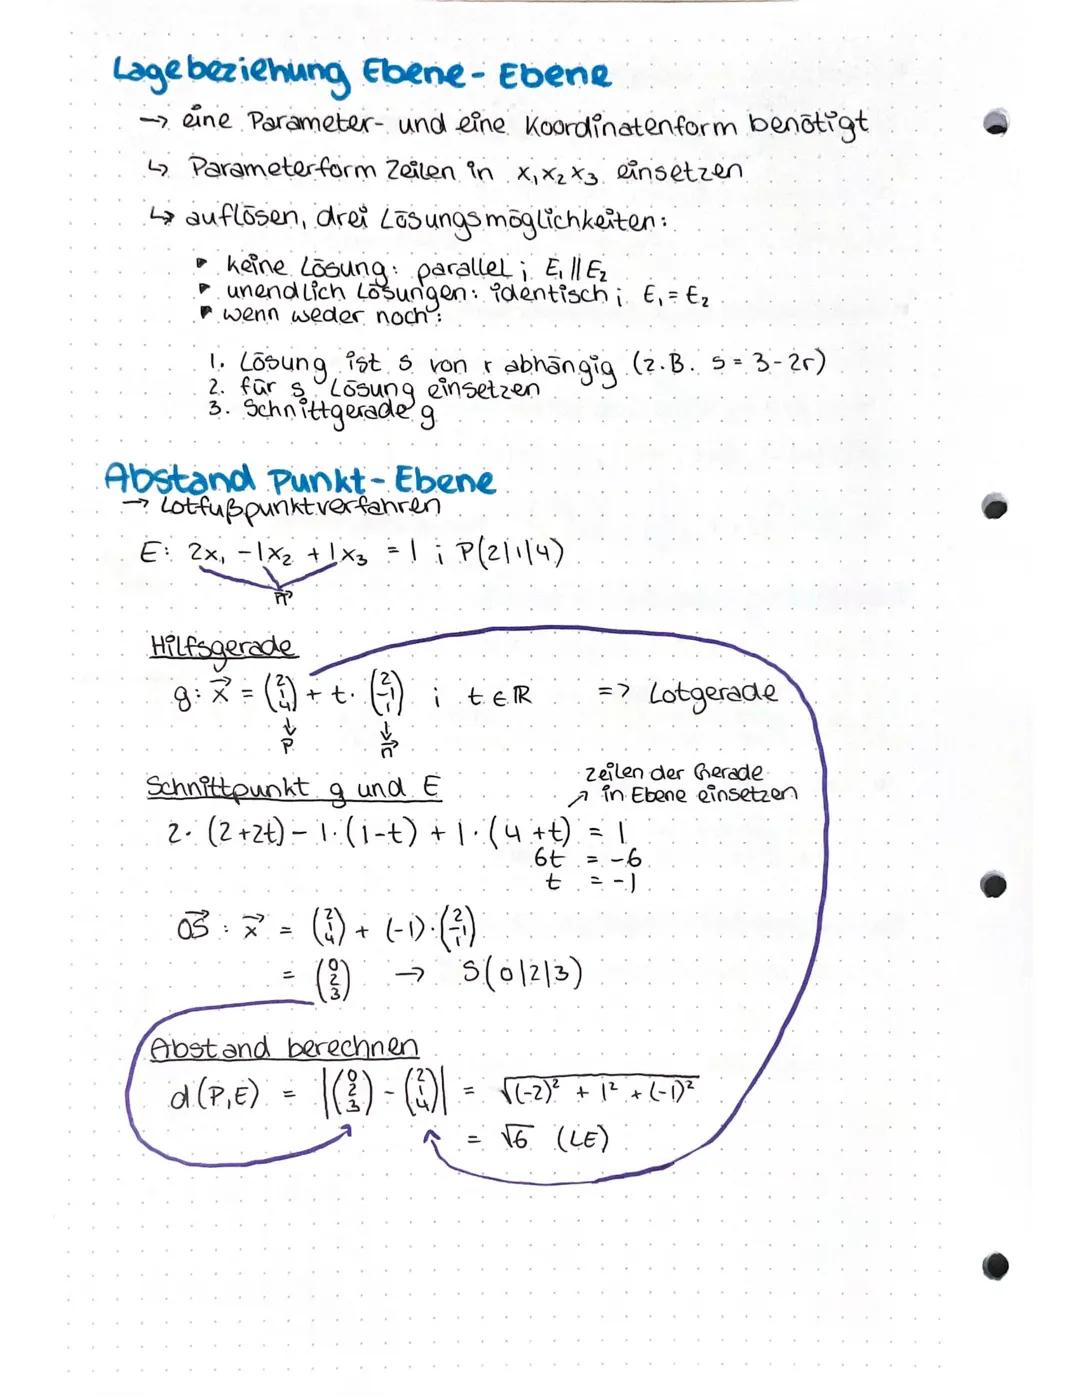 Lagebeziehung Ebene - Ebene
→ eine Parameter- und eine Koordinatenform benötigt
↳ Parameterform Zeilen in x₁x₂x₃ einsetzen
↳ auflösen, drei Lösungsmöglichkeiten:
▸ keine Lösung: parallel ; E₁ || E₂
▸ unendlich Lösungen: identisch ; E₁ = E₂
▸ wenn weder noch:
1. Lösung ist s von r abhängig (z.B. s = 3 - 2r)
2. für s Lösung einsetzen
3. Schnittgerade g
Abstand Punkt - Ebene
→ Lotfußpunktverfahren
E: 2x₁ - 1x₂ + 1x₃ = 1 ; P(2|1|4)
n⃗
Hilfsgerade
g: x⃗ = (2 1 4) + t · (2 -1 1) ; t ∈ ℝ => Lotgerade
↓ ↓
P n⃗
Schnittpunkt g und E
Zeilen der Gerade
↗ in Ebene einsetzen
2 · (2+2t) - 1 · (1-t) + 1 · (4+t) = 1
6t = -6
t = -1
OS⃗ : x⃗ = (2 1 4) + (-1) · (2 -1 1)
= (0 2 3) → S(0|2|3)
Abstand berechnen
d(P,E) = |(0 2 3) - (2 1 4)| = √(-2)² + 1² + (-1)²
= √6 (LE)